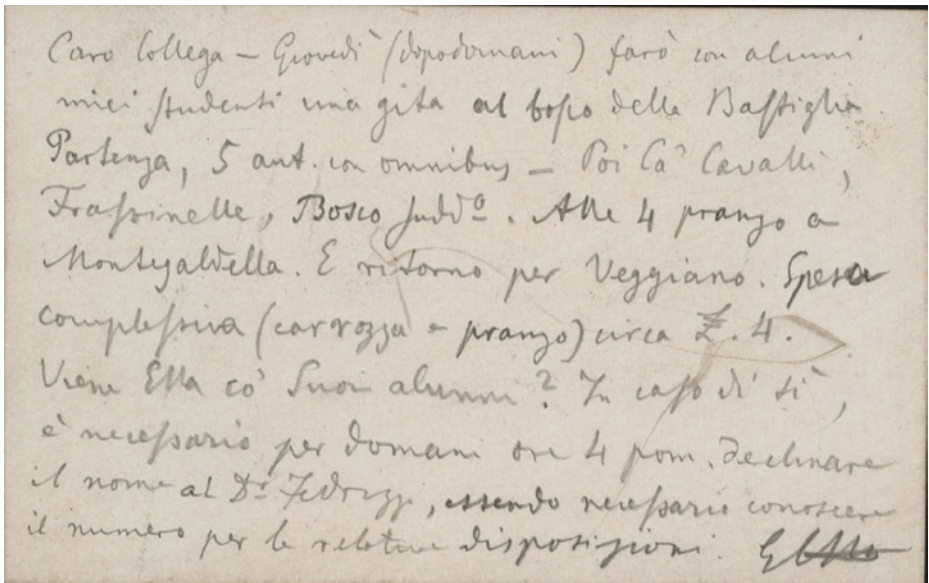 Caro Collega – Giovedì (dopodomani) farò con alunni
miei studenti una gita al bosco della Bastiglia.
Partenza, 5 ant. con omnibus – Poi Cà Cavalli,
Frassinelle, Bosco sudd.º. Alle 4 pranzo a
Montegaldella. E ritorno per Veggiano. Spesa
complessiva (carrozza e pranzo) circa £. 4.
Viene Ella co' Suoi alunni? In caso di sì,
è necessario per domani ore 4 pom. declinare
il nome al Dr. Fedrizzi, essendo necessario conoscere
il numero per le relative disposizioni.